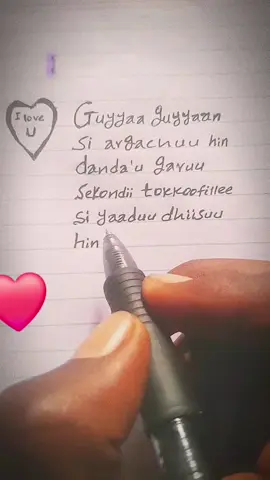 I love
U
Guyyaa guyyaan
si argachuu hin
danda'u garuu
sekondii tokkoofillee
si yaaduu dhiisuu
hin